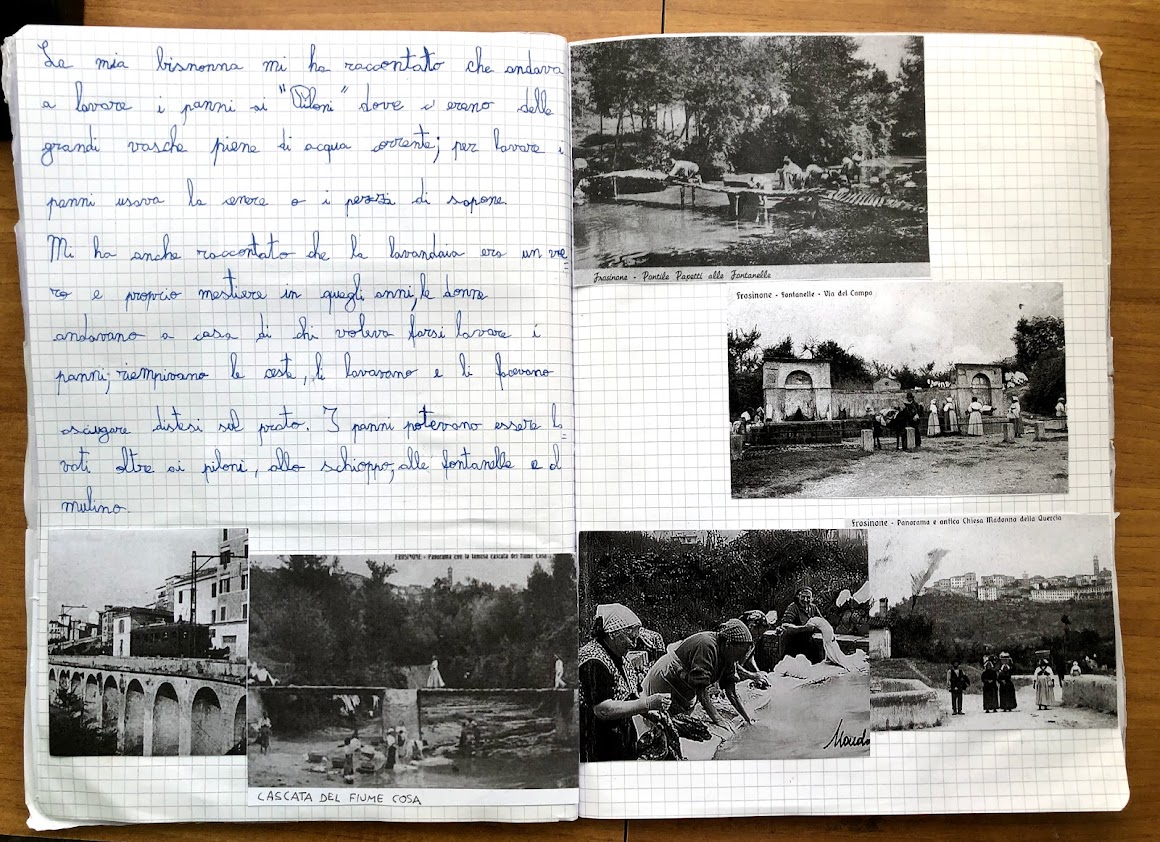 La mia bisnonna mi ha raccontato che andava
a lavare i panni ai "Piloni" dove c'erano delle
grandi vasche piene di acqua corrente; per lavare i
panni usava la cenere o i pezzi di sapone.
Mi ha anche raccontato che la lavandaia era un ve=
ro e proprio mestiere in quegli anni, le donne
andavano a casa di chi voleva farsi lavare i
panni; riempivano le ceste, li lavavano e li facevano
asciugare distesi sul prato. I panni potevano essere la=
vati oltre ai piloni, allo schioppo, alle fontanelle e al
mulino.
FROSINONE - Panorama con la famosa cascata del fiume Cosa
CASCATA DEL FIUME COSA
Frosinone - Pontile Papetti alle Fontanelle
Frosinone - Fontanelle - Via del Campo
Frosinone - Panorama e antica Chiesa Madonna della Quercia